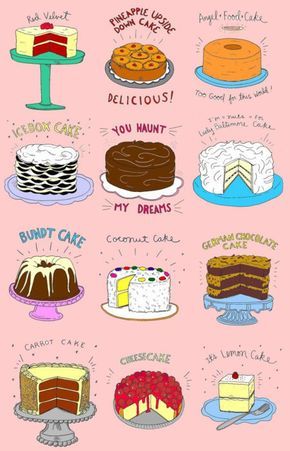 Red Velvet
PINEAPPLE UPSIDE
DOWN CAKE
DELICIOUS!
Angel • Food • Cake
Too Good for this World!
ICEBOX CAKE
YOU HAUNT
MY DREAMS
I'm - nuts - for
Lady Baltimore Cake
BUNDT CAKE
Coconut Cake
GERMAN CHOCOLATE
CAKE
CARROT CAKE
CHEESECAKE
It's Lemon Cake